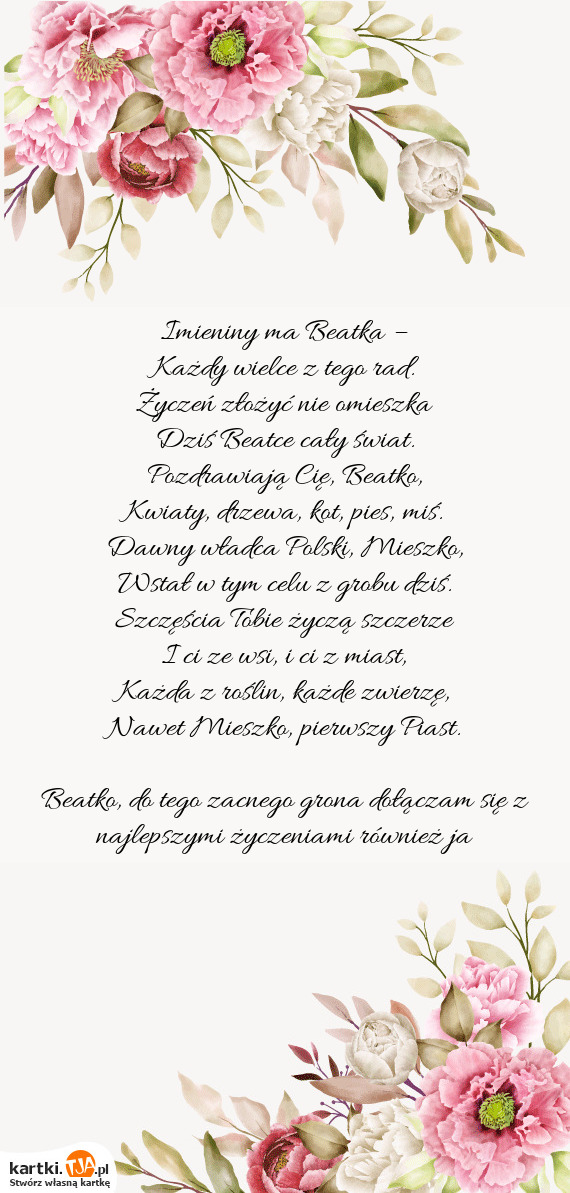 Imieniny ma Beatka –
Każdy wielce z tego rad.
Życzeń złożyć nie omieszka
Dziś Beatce cały świat.
Pozdrawiają Cię, Beatko,
Kwiaty, drzewa, kot, pies, miś.
Dawny władca Polski, Mieszko,
Wstał w tym celu z grobu dziś.
Szczęścia Tobie życzą szczerze
I ci ze wsi, i ci z miast,
Każda z roślin, każde zwierzę,
Nawet Mieszko, pierwszy Piast.
Beatko, do tego zacnego grona dołączam się z
najlepszymi życzeniami również ja
kartki.TJA.pl
Stwórz własną kartkę